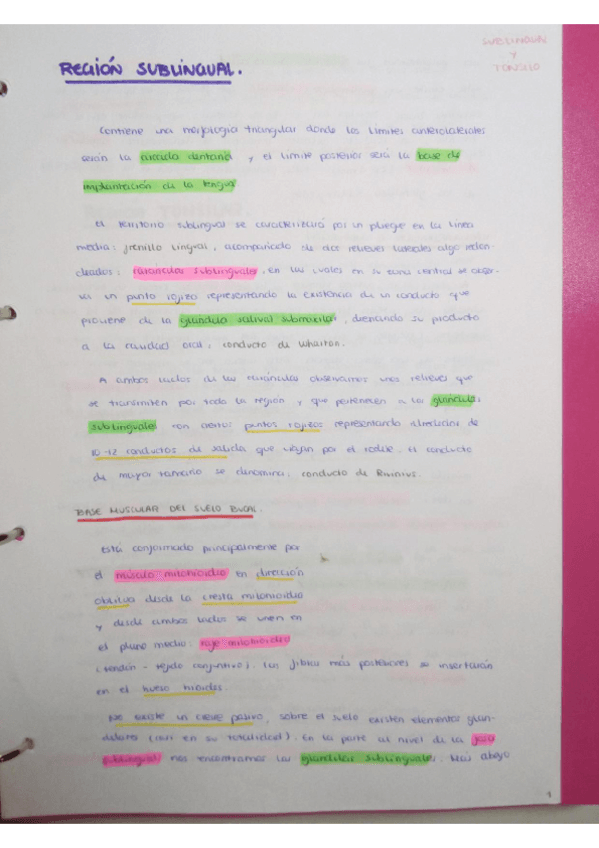 SUBLINGUAL
Y
TONSILO
REGIÓN SUBLINGUAL.
Contiene una morfología triangular donde los límites anterolaterales
serán la arcada dentaria y el límite posterior será la base de
implantación de la lengua
El territorio sublingual se caracterizará por un pliegue en la línea
media: frenillo lingual, acompañado de dos relieves laterales algo redon-
deados: carúnculas sublinguales, en las cuales en su zona central se obser-
va un punto rojizo representando la existencia de un conducto que
proviene de la glándula salival submaxilar, drenando su producto
a la cavidad oral: conducto de Wharton.
A ambos lados de las carúnculas observamos unos relieves que
se transmiten por toda la región y que pertenecen a la glándulas
sublinguales con ciertos puntos rojizos representando alrededor de
10-12 conductos de salida que viajan por el rodete. El conducto
de mayor tamaño se denomina, conducto de Rivinius.
BASE MUSCULAR DEL SUELO BUCAL.
Está conformado principalmente por
el músculo milohioideo en dirección
oblicua desde la cresta milohioidea
y desde ambos lados se unen en
el plano medio: rafe milohioideo
(tendón - tejido conjuntivo). Las fibras más posteriores se insertarán
en el hueso hioides.
No existe un cierre pasivo, sobre el suelo existen elementos glan-
dulares (casi en su totalidad). En la parte al nivel de la
sublingual nos encontramos las glándulas sublinguales. Más abajo
1